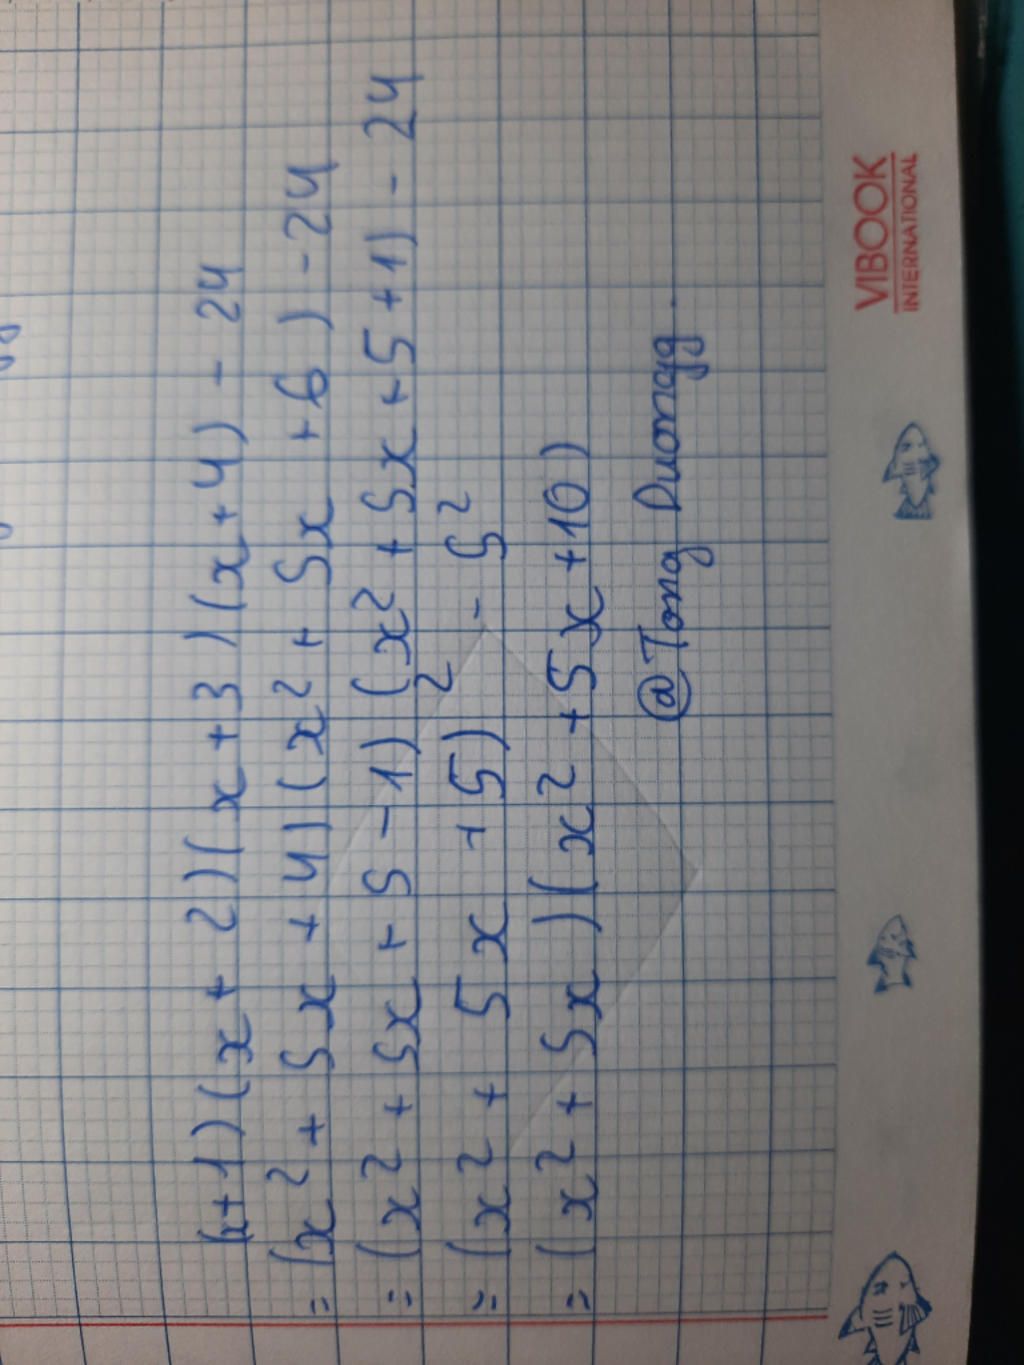 (x+1)(x+2)(x+3)(x+4) - 24
= (x² + 5x + 4)(x² + 5x + 6) - 24
= (x² + 5x + 5 - 1)(x² + 5x + 5 + 1) - 24
= (x² + 5x + 5)² - 5²
= (x² + 5x)(x² + 5x + 10)
@Tong Duongg.
VIBOOK
INTERNATIONAL